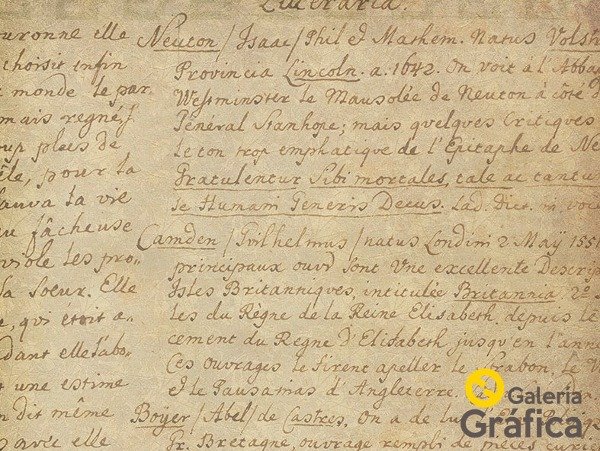 Litteraria.
uronne elle
choisit enfin
monde le par
mais regnés
oup ples de
le, pour la
sauva la vie
u fâcheuse
viole les pro
sa Soeur. Elle
e, qui etoit a-
dant elle s'abo
t une estime
n dit même
avée elle
Neuton / Isaac / Phil & Mathem. Natus Volst
Provincia Lincoln. a. 1642. On voit à l'Abba
Westminster le Mausolée de Neuton à côté d
Général Stanhope; mais quelques Critiques
le ton trop emphatique de l'Epitaphe de Ne
Gratulentur Sibi mortales, tale ac tantu
se Humani Generis Decus. Lad. Dict. in voc
Camden / Guilhelmus / natus Londini 2 Maÿ 155
principaux ouvr sont Une excellente Descrip
Isles Britanniques, intitulée Britannia 2°
les du Règne de la Reine Elisabeth. depuis le
cement du Regne d'Elisabeth jusqu'en l'ann
Ces ouvrages le firent apeller le Strabon, le V
& le Pausanias d'Angleterre.
Boyer / Abel / de Castres. On a de lui
Gr. Bretagne, ouvrage rempli de pièces curi
Galeria
Gráfica